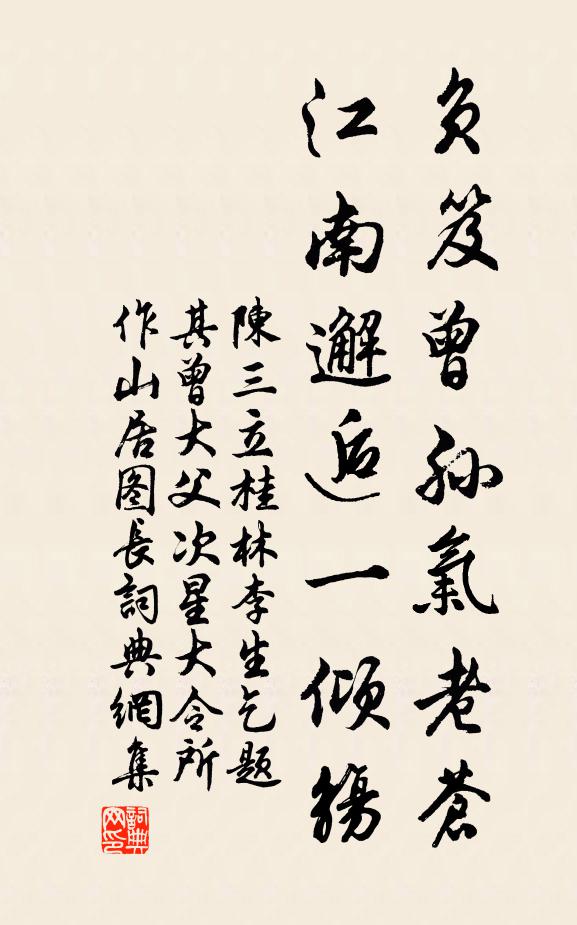 負笈曾孫氣老蒼
江南邂逅一傾觴
陳三立桂林李生乞題
其曾大父次星大令所
作山居图長詞典網集
詞典
网印